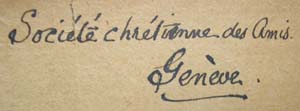 Société chrétienne des Amis.
Genève.